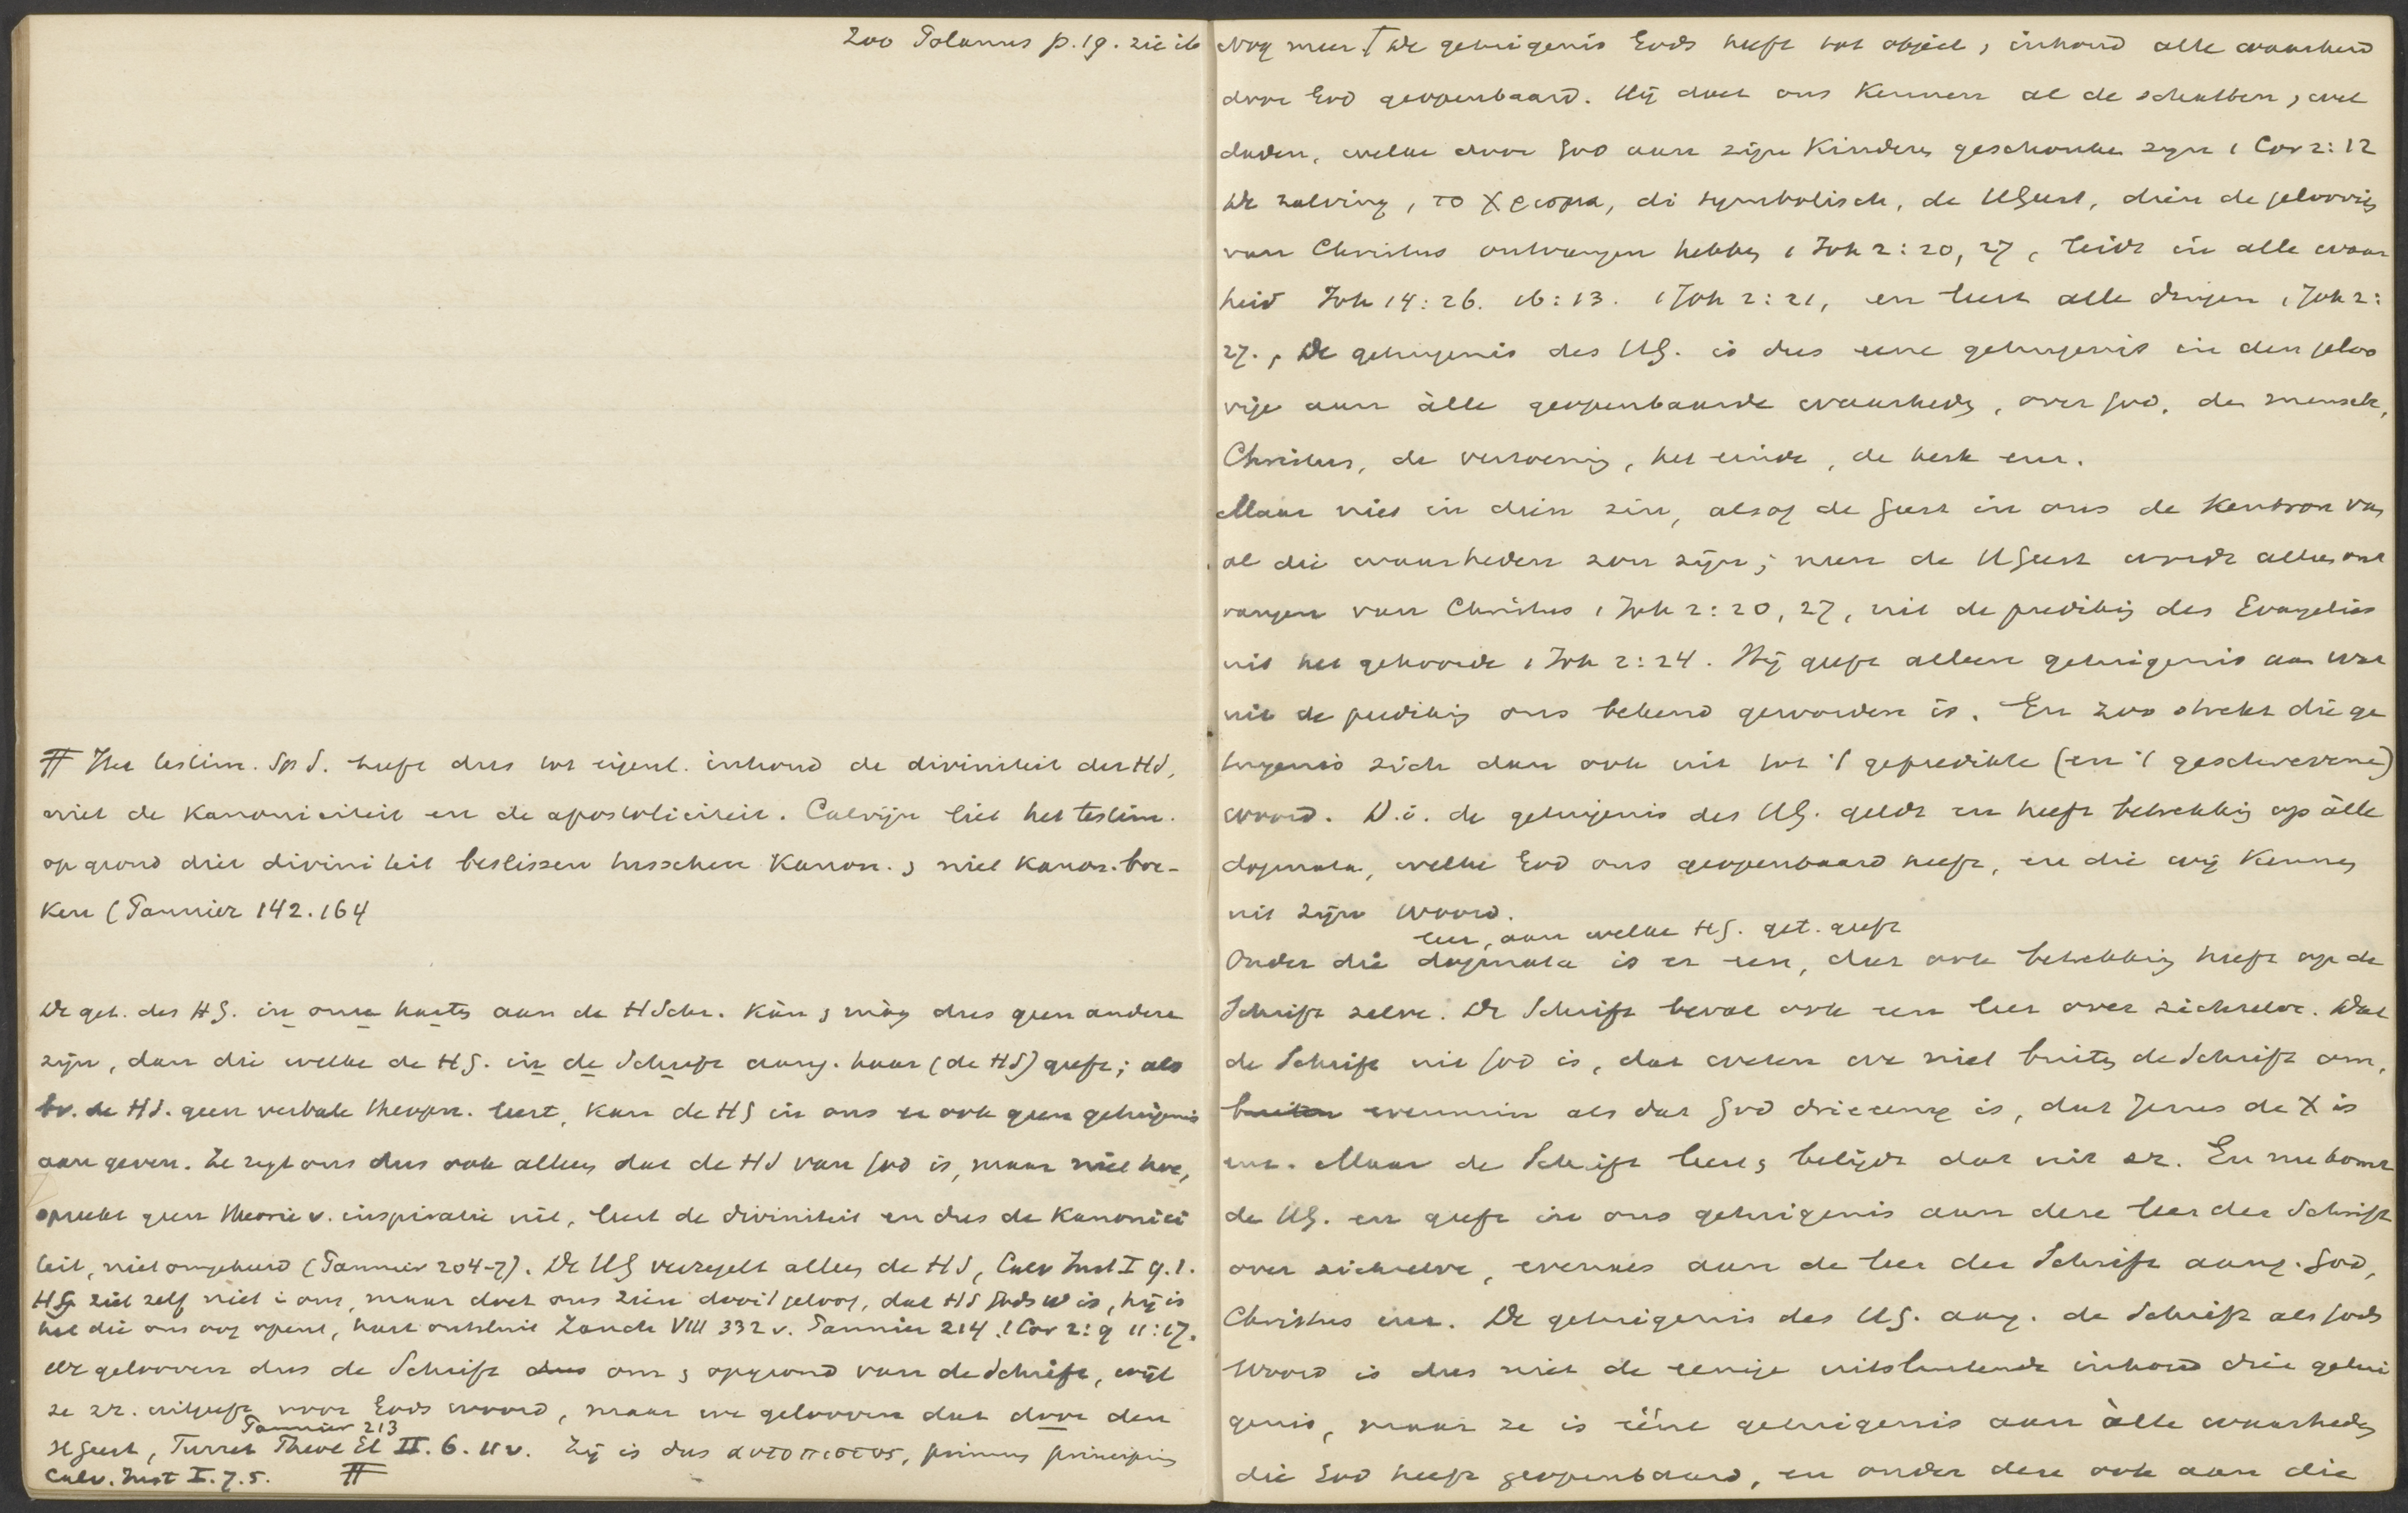 Zoo Polanus p. 19. zie ib
╥ Het testim. Sp S. heeft dus tot eigenl. inhoud de diviniteit der HS,
niet de kanoniciteit en de apostoliciteit. Calvijn liet het testim.
op grond dier diviniteit beslissen tusschen Kanon. & niet kanon. boe-
ken (Pannier 142. 164
De get. des HG. in onze harten aan de HSchr. kan & mag dus geen andere
zijn, dan die welke de HG. in de Schrift aang. haar (de HS) geeft; als
bv. de HS. geen verbale theopn. leert, kan de HG in ons er ook geen getuigenis
aan geven. Ze zegt ons dus ook alleen dat de HS van God is, maar niet hoe,
spreekt geen theorie v. inspiratie uit, leert de diviniteit en dus de kanonici
teit, niet omgekeerd (Pannier 204-7). De HG verzegelt alleen de HS, Calv Inst I 9.1.
HG ziet zelf niet in ons, maar doet ons zien door 't geloof, dat HS Gods W is, hij is
het die ons oog opent, hart ontsluit Zanch VIII 332 v. Pannier 214. 1 Cor 2:9 11:17.
We gelooven dus de Schrift dus om & op grond van de Schrift, wijl
ze zz. uitgeeft voor Gods woord, maar we gelooven dat door den
Pannier 213
HGeest, Turret Theol El II. 6. 11 v. Zij is dus αυτοπιστος, primum principium
Calv. Inst I. 7. 5. ╥
Nog meer † De getuigenis Gods heeft tot object, inhoud alle waarheid
door God geopenbaard. Hij doet ons kennen al de schatten, wel
daden, welke door God aan zijn kinderen geschonken zijn 1 Cor 2:12
De zalving, το χρισμα, di symbolisch, de HGeest, dien de geloovigen
van Christus ontvangen hebben 1 Joh 2:20, 27, leidt in alle waar
heid Joh 14:26. 16:13. 1 Joh 2:21, en leert alle dingen 1 Joh 2:
27. De getuigenis des HG. is dus eene getuigenis in den geloo
vige aan àlle geopenbaarde waarheden, over God, de mensch,
Christus, de verzoening, het einde, de kerk enz.
Maar niet in dien zin, alsof de Geest in ons de kenbron van
al die waarheden zou zijn; neen de HGeest wordt alleen ont
vangen van Christus 1 Joh 2:20, 27, uit de prediking des Evangelies
uit het gehoorde 1 Joh 2:24. Hij geeft alleen getuigenis aan wat
uit de prediking ons bekend geworden is. En zoo strekt die ge
tuigenis zich dan ook uit tot 't gepredikte (en 't geschrevene)
woord. D.i. de getuigenis des HG. geldt en heeft betrekking op àlle
dogmata, welke God ons geopenbaard heeft, en die wij kennen
uit zijn Woord.
leer, aan welke HG. get. geeft
Onder die dogmata is er een, dat ook betrekking heeft op de
Schrift zelve. De Schrift bevat ook een leer over zichzelve. Dat
de Schrift uit God is, dat weten we niet buiten de Schrift om,
buiten evenmin als dat God drieeenig is, dat Jezus de X is
enz. Maar de Schrift leert & belijdt dat uit zz. En nu komt
de HG. en geeft in ons getuigenis aan deze leer der Schrift
over zichzelve, evenals aan de leer der Schrift aang. God,
Christus enz. De getuigenis des HG. aang. de Schrift als Gods
Woord is dus niet de eenige uitsluitende inhoud dier getui
genis, maar ze is ééne getuigenis aan àlle waarheden
die God heeft geopenbaard, en onder deze ook aan die